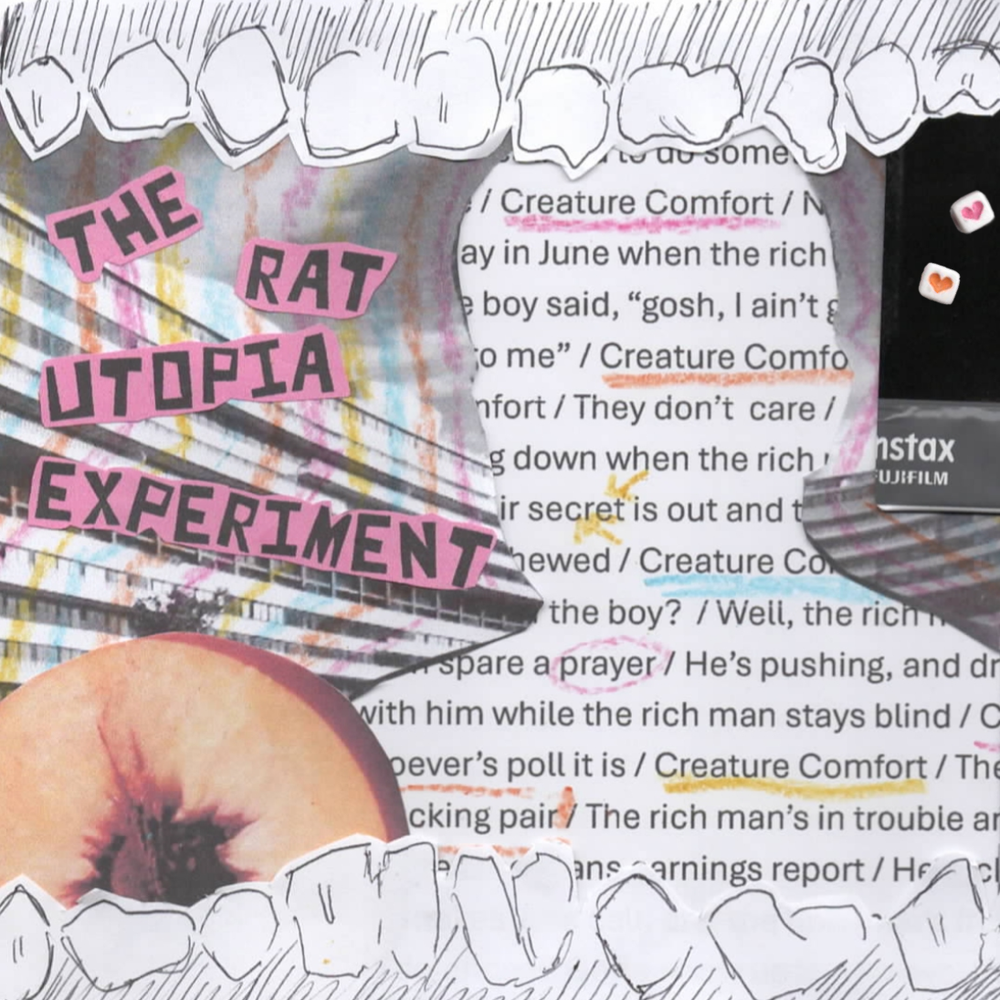 THE
RAT
UTOPIA
EXPERIMENT
to do some
/ Creature Comfort / N
ay in June when the rich
boy said, “gosh, I ain’t g
o me” / Creature Comfo
nfort / They don’t care /
g down when the rich
ir secret is out and t
hewed / Creature Co
the boy? / Well, the rich
spare a prayer / He’s pushing, and dr
with him while the rich man stays blind / C
oever’s poll it is / Creature Comfort / The
cking pair / The rich man’s in trouble an
ans earnings report / He
instax
FUJIFILM